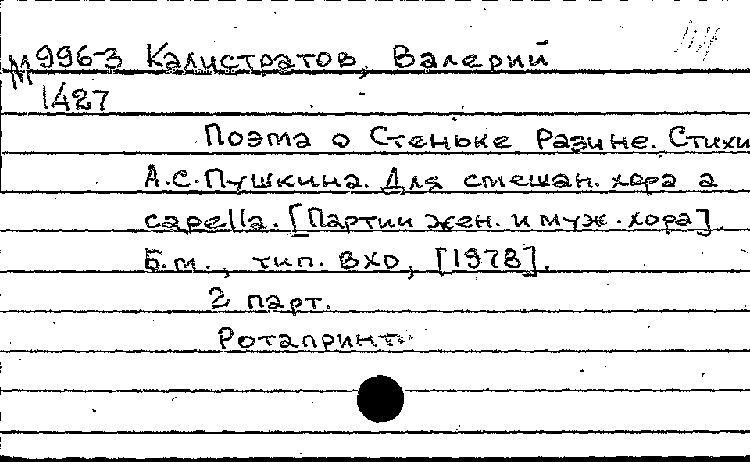 М 996-3 Калистратов, Валерий
1427
Поэма о Стеньке Разине. Стихи
А.С.Пушкина. Для смешан. хора а
capella. [Партии жен. и муж. хора].
Б.м., тип. ВХО, [1978].
2 парт.
Ротапринт